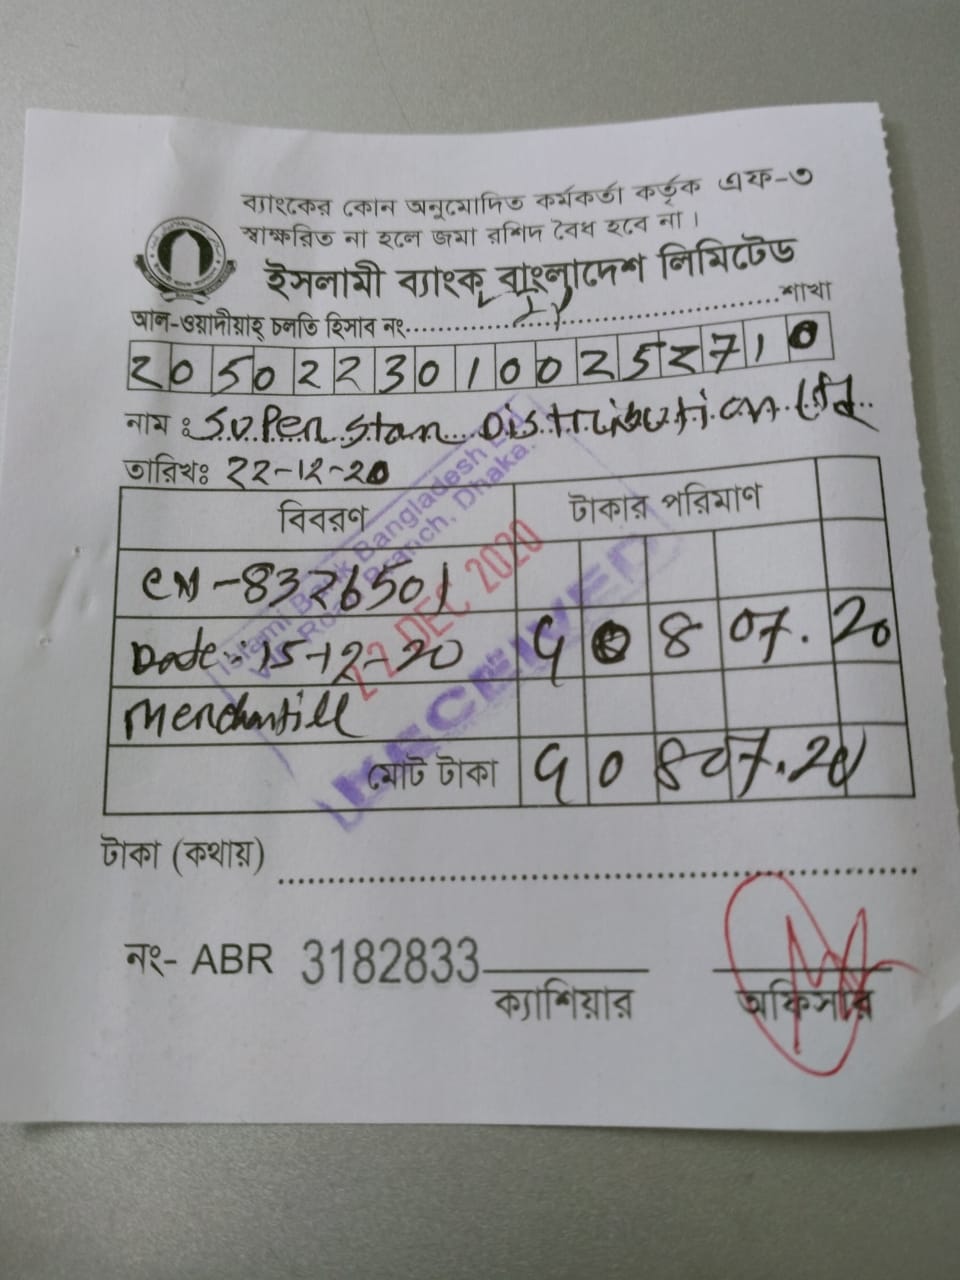 ব্যাংকের কোন অনুমোদিত কর্মকর্তা কর্তৃক এফ-৩
স্বাক্ষরিত না হলে জমা রশিদ বৈধ হবে না।
ইসলামী ব্যাংক বাংলাদেশ লিমিটেড
আল-ওয়াদীয়াহ্ চলতি হিসাব নং..............................শাখা
20502230100252710
নাম : Super Star Distribution Ltd
তারিখঃ 22-12-20
বিবরণ টাকার পরিমাণ
CM-8326501
Date:-15-12-20 90807.20
Merchantile
মোট টাকা 90807.20
Islami Bank Bangladesh Ltd
Branch, Dhaka.
22 DEC 2020
RECEIVED
টাকা (কথায়)
নং- ABR 3182833
ক্যাশিয়ার অফিসার